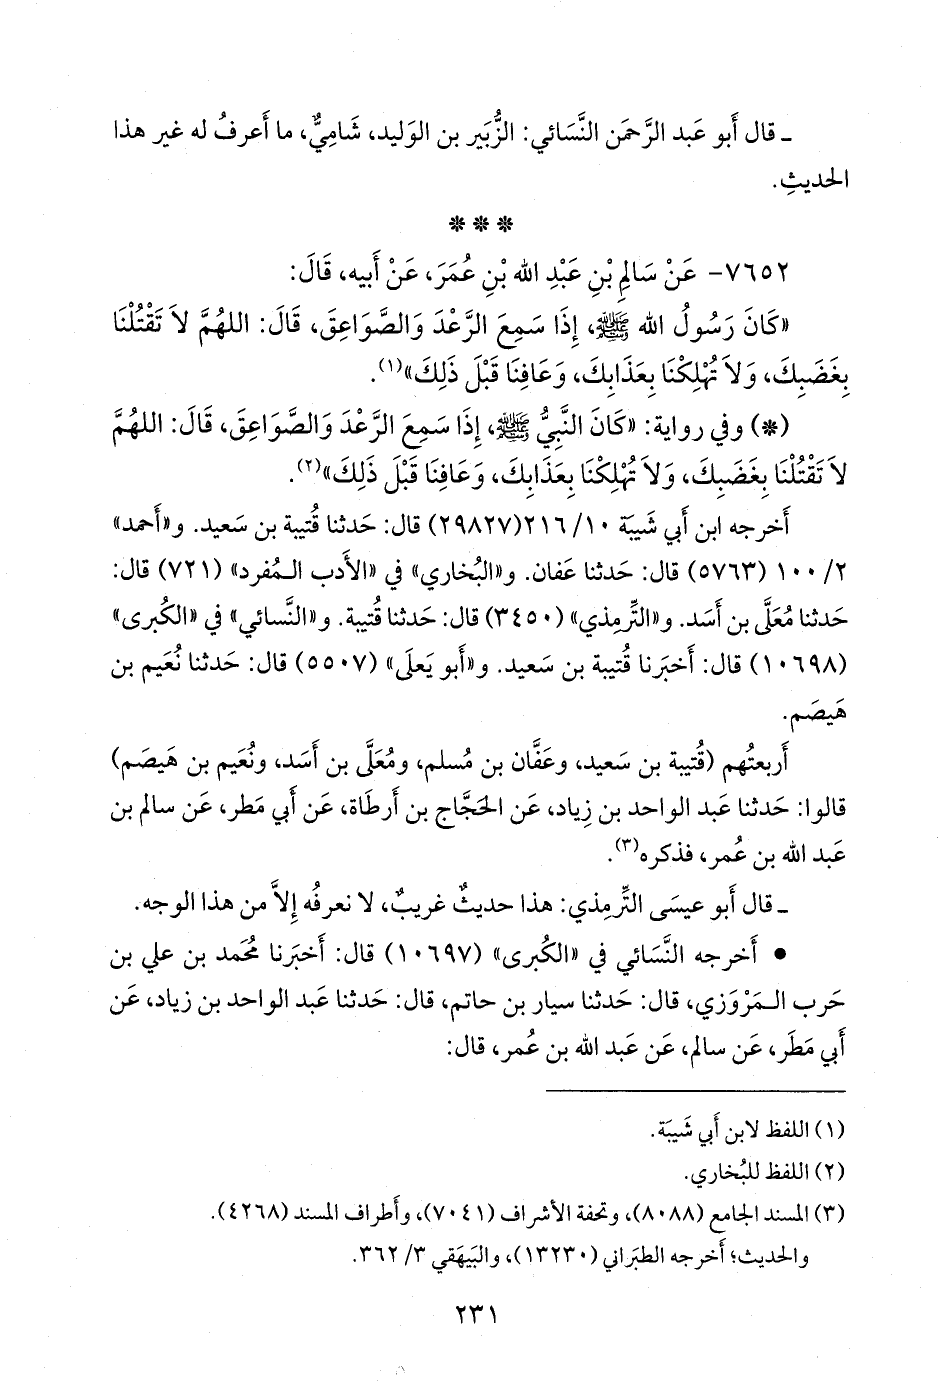 ـ قال أَبو عَبد الرَّحمَن النَّسَائي: الزُّبَير بن الوَليد، شَاميٌّ، ما أَعرفُ له غير هذا
الحديثِ.
* * *
٧٦٥٢- عَنْ سَالِمِ بْنِ عَبْدِ الله بْنِ عُمَرَ، عَنْ أَبيه، قَالَ:
«كَانَ رَسُولُ الله ﷺ، إِذَا سَمِعَ الرَّعْدَ وَالصَّوَاعِقَ، قَالَ: اللهُمَّ لاَ تَقْتُلْنَا
بِغَضَبِكَ، وَلاَ تُهْلِكْنَا بِعَذَابِكَ، وَعَافِنَا قَبْلَ ذَلِكَ»(١).
(*) وفي رواية: «كَانَ النَّبيُّ ﷺ، إِذَا سَمِعَ الرَّعْدَ وَالصَّوَاعِقَ، قَالَ: اللهُمَّ
لاَ تَقْتُلْنَا بِغَضَبِكَ، وَلاَ تُهْلِكْنَا بِعَذَابِكَ، وَعَافِنَا قَبْلَ ذَلِكَ»(٢).
أَخرجه ابن أَبي شَيبَة ١٠/ ٢١٦(٢٩٨٢٧) قال: حَدثنا قُتيبة بن سَعيد. و«أَحمد»
٢/ ١٠٠ (٥٧٦٣) قال: حَدثنا عَفان. و«البُخاري» في «الأَدب المُفرد» (٧٢١) قال:
حَدثنا مُعَلَّى بن أَسَد. و«التِّرمِذي» (٣٤٥٠) قال: حَدثنا قُتيبة. و«النَّسائي» في «الكُبرى»
(١٠٦٩٨) قال: أَخبَرنا قُتيبة بن سَعيد. و«أَبو يَعلَى» (٥٥٠٧) قال: حَدثنا نُعَيم بن
هَيصَم.
أَربعتُهم (قُتيبة بن سَعيد، وعَفَّان بن مُسلم، ومُعَلَّى بن أَسَد، ونُعَيم بن هَيصَم)
قالوا: حَدثنا عَبد الواحد بن زِياد، عَن الحَجَّاج بن أَرطَاة، عَن أَبي مَطر، عَن سالم بن
عَبد الله بن عُمر، فذكره(٣).
ـ قال أَبو عيسَى التِّرمِذي: هذا حديثٌ غريبٌ، لا نعرفُه إِلاَّ من هذا الوجه.
• أَخرجه النَّسَائي في «الكُبرى» (١٠٦٩٧) قال: أَخبَرنا مُحَمد بن علي بن
حَرب المَرْوَزي، قال: حَدثنا سيار بن حاتم، قال: حَدثنا عَبد الواحد بن زياد، عَن
أَبي مَطَر، عَن سالم، عَن عَبد الله بن عُمر، قال:
(١) اللفظ لابن أَبي شَيبَة.
(٢) اللفظ للبُخاري.
(٣) المسند الجامع (٨٠٨٨)، وتحفة الأشراف (٧٠٤١)، وأَطراف المسند (٤٢٦٨).
والحديث؛ أَخرجه الطبَراني (١٣٢٣٠)، والبَيهَقي ٣/ ٣٦٢.
٢٣١